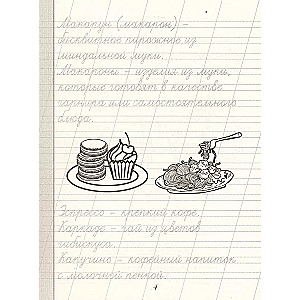 Макаруны (макарон) –
бисквитное пирожное из
миндальной муки.
Макароны – изделия из муки,
которые готовят в качестве
гарнира или самостоятельного
блюда.
Эспрессо – крепкий кофе.
Каркаде – чай из цветов
гибискуса.
Капучино – кофейный напиток
с молочной пенкой.
4